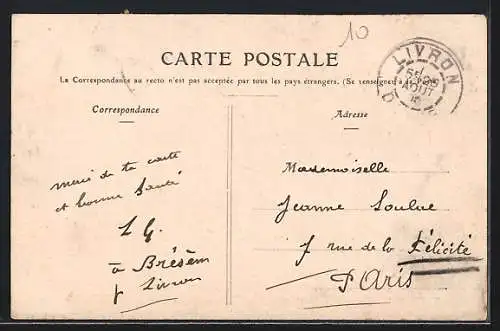 10
CARTE POSTALE
La Correspondance au recto n'est pas acceptée par tous les pays étrangers. (Se renseigner à la Poste)
LIVRON
AOUT
Correspondance
Adresse
merci de ta carte
et bonne Santé
L G.
à Brésèm
p Livron
Mademoiselle
Jeanne
7 rue de la Félicité
PAris